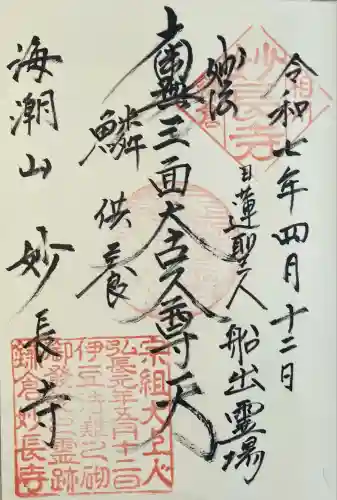 令和七年四月十二日
妙法
日蓮聖人船出霊場
三面大古久尊天
鱗供養
海潮山 妙長寺
妙長寺
宗祖大上人
弘長元年五月十二日
伊豆法難之砌
霊跡
鎌倉妙長寺